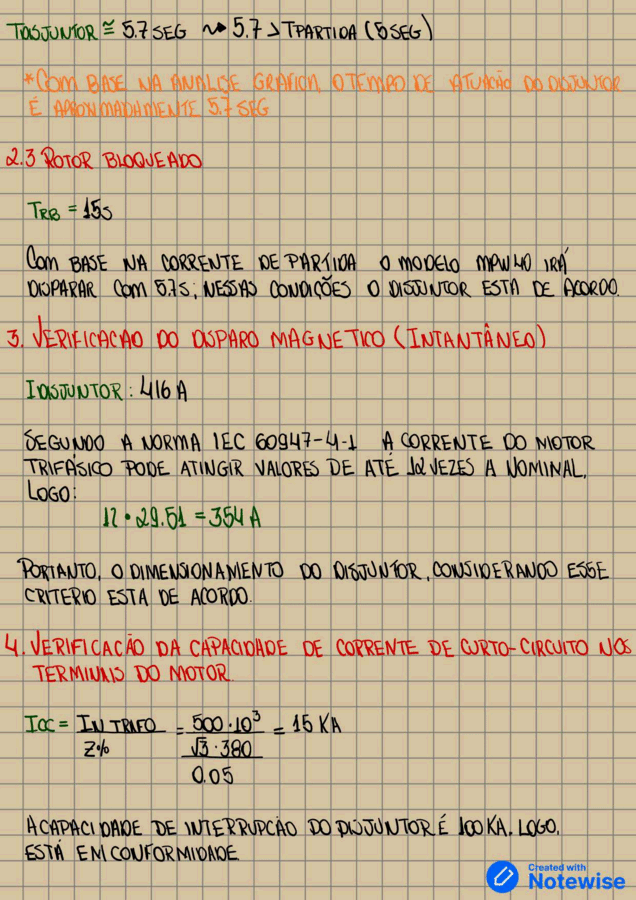 TDISJUNTOR ≅ 5.7 SEG ⇝ 5.7 > TPARTIDA (5 SEG)
*COM BASE NA ANALISE GRAFICA, O TEMPO DE ATUAÇÃO DO DISJUNTOR
É APROXIMADAMENTE 5.7 SEG
2.3 ROTOR BLOQUEADO
TRB = 15s
COM BASE NA CORRENTE DE PARTIDA O MODELO MPW40 IRÁ
DISPARAR COM 5.7s, NESSAS CONDIÇÕES O DISJUNTOR ESTA DE ACORDO.
3. VERIFICACAO DO DISPARO MAGNETICO (INTANTÂNEO)
IDISJUNTOR: 416 A
SEGUNDO A NORMA IEC 60947-4-1 A CORRENTE DO MOTOR
TRIFÁSICO PODE ATINGIR VALORES DE ATÉ 12 VEZES A NOMINAL,
LOGO:
12 • 29.51 = 354 A
PORTANTO, O DIMENSIONAMENTO DO DISJUNTOR, CONSIDERANDO ESSE
CRITERIO ESTA DE ACORDO.
4. VERIFICAÇÃO DA CAPACIDADE DE CORRENTE DE CURTO-CIRCUITO NOS
TERMINAIS DO MOTOR.
ICC = IN TRAFO = 500·10³ = 15 KA
Z% √3·380
0.05
A CAPACIDADE DE INTERRUPCÃO DO DISJUNTOR É 100 KA. LOGO,
ESTÁ EM CONFORMIDADE
Created with
Notewise